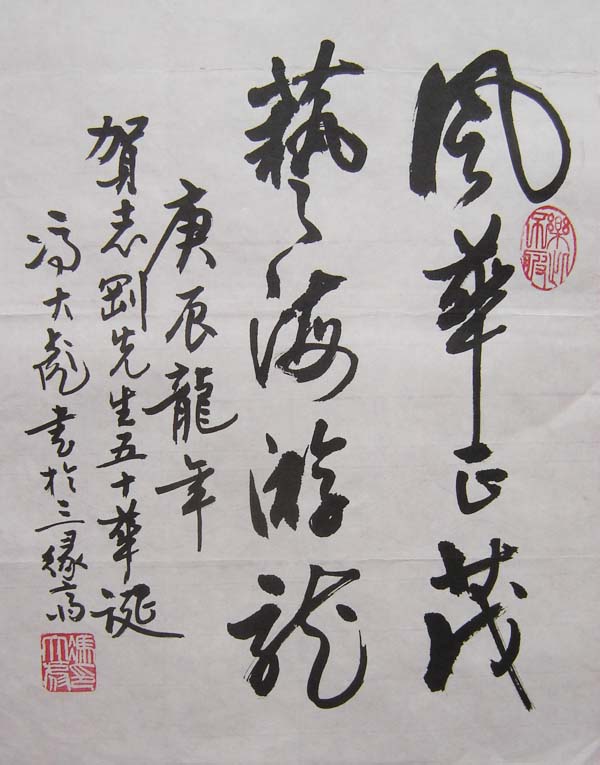 風華正茂
藝海游龍
庚辰龍年
賀志剛先生五十華誕
馮大彪書於三緣斋